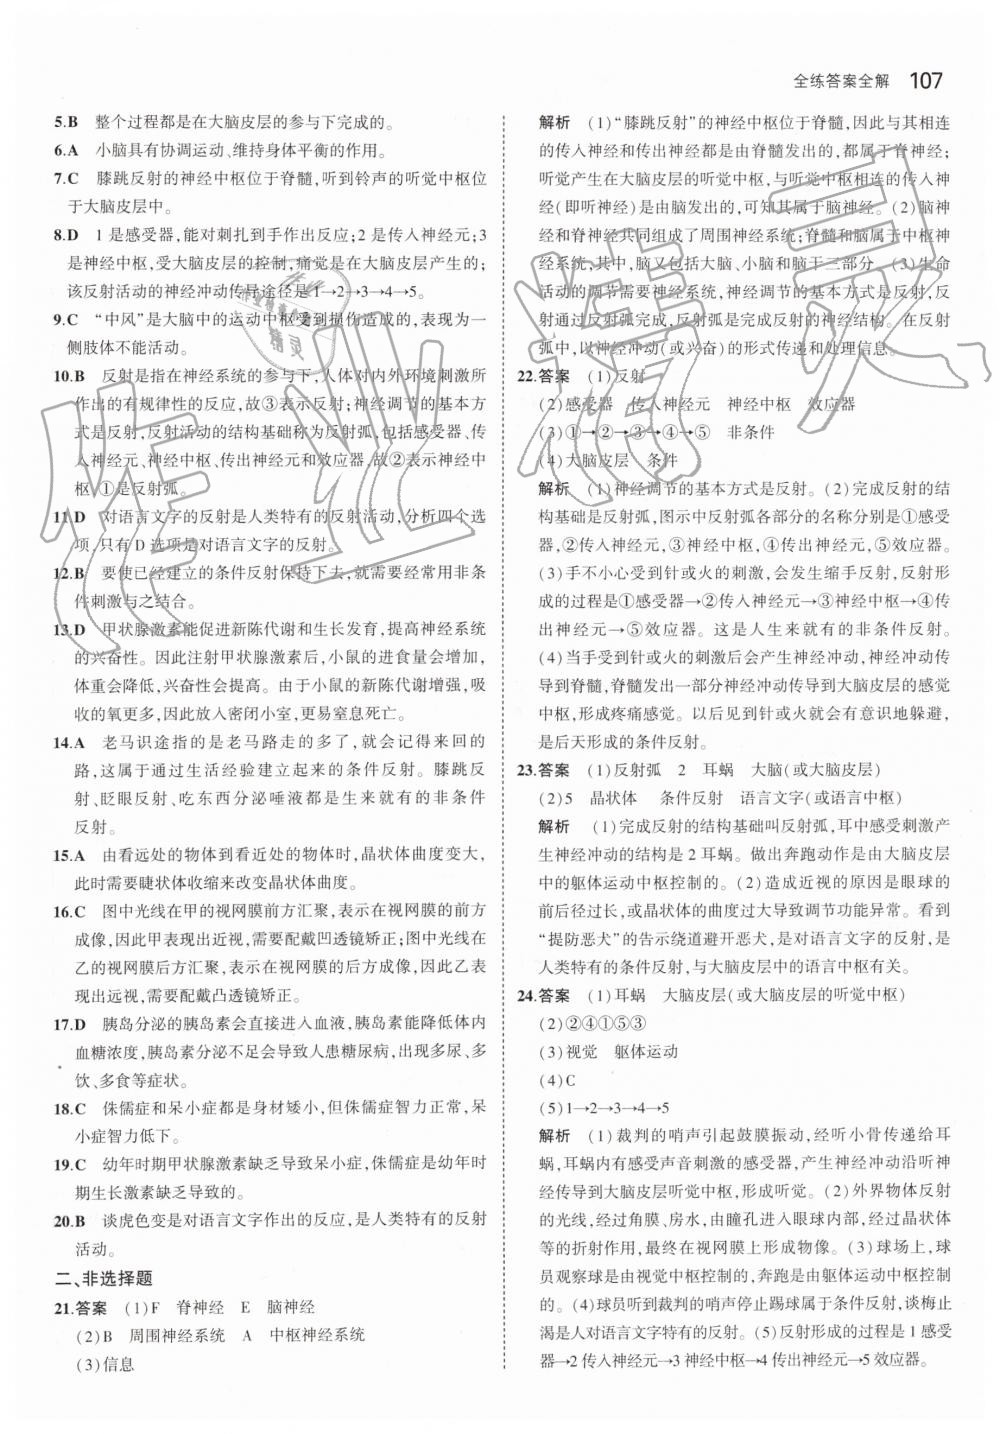 全练答案全解 107
5.B 整个过程都是在大脑皮层的参与下完成的。
6.A 小脑具有协调运动、维持身体平衡的作用。
7.C 膝跳反射的神经中枢位于脊髓,听到铃声的听觉中枢位
于大脑皮层中。
8.D 1是感受器,能对刺扎到手作出反应;2是传入神经元;3
是神经中枢,受大脑皮层的控制,痛觉是在大脑皮层产生的;
该反射活动的神经冲动传导途径是1→2→3→4→5。
9.C “中风”是大脑中的运动中枢受到损伤造成的,表现为一
侧肢体不能活动。
10.B 反射是指在神经系统的参与下,人体对内外环境刺激所
作出的有规律性的反应,故③表示反射;神经调节的基本方
式是反射,反射活动的结构基础称为反射弧,包括感受器、传
入神经元、神经中枢、传出神经元和效应器,故②表示神经中
枢,①是反射弧。
11.D 对语言文字的反射是人类特有的反射活动,分析四个选
项,只有D选项是对语言文字的反射。
12.B 要使已经建立的条件反射保持下去,就需要经常用非条
件刺激与之结合。
13.D 甲状腺激素能促进新陈代谢和生长发育,提高神经系统
的兴奋性。因此注射甲状腺激素后,小鼠的进食量会增加,
体重会降低,兴奋性会提高。由于小鼠的新陈代谢增强,吸
收的氧更多,因此放入密闭小室,更易窒息死亡。
14.A 老马识途指的是老马路走的多了,就会记得来回的
路,这属于通过生活经验建立起来的条件反射。膝跳反
射、眨眼反射、吃东西分泌唾液都是生来就有的非条件
反射。
15.A 由看远处的物体到看近处的物体时,晶状体曲度变大,
此时需要睫状体收缩来改变晶状体曲度。
16.C 图中光线在甲的视网膜前方汇聚,表示在视网膜的前方
成像,因此甲表现出近视,需要配戴凹透镜矫正;图中光线在
乙的视网膜后方汇聚,表示在视网膜的后方成像,因此乙表
现出远视,需要配戴凸透镜矫正。
17.D 胰岛分泌的胰岛素会直接进入血液,胰岛素能降低体内
血糖浓度,胰岛素分泌不足会导致人患糖尿病,出现多尿、多
饮、多食等症状。
18.C 侏儒症和呆小症都是身材矮小,但侏儒症智力正常,呆
小症智力低下。
19.C 幼年时期甲状腺激素缺乏导致呆小症,侏儒症是幼年时
期生长激素缺乏导致的。
20.B 谈虎色变是对语言文字作出的反应,是人类特有的反射
活动。
二、非选择题
21.答案 (1)F 脊神经 E 脑神经
(2)B 周围神经系统 A 中枢神经系统
(3)信息
解析 (1)“膝跳反射”的神经中枢位于脊髓,因此与其相连
的传入神经和传出神经都是由脊髓发出的,都属于脊神经;
听觉产生在大脑皮层的听觉中枢,与听觉中枢相连的传入神
经(即听神经)是由脑发出的,可知其属于脑神经。(2)脑神
经和脊神经共同组成了周围神经系统;脊髓和脑属于中枢神
经系统,其中,脑又包括大脑、小脑和脑干三部分。(3)生命
活动的调节需要神经系统,神经调节的基本方式是反射,反
射通过反射弧完成,反射弧是完成反射的神经结构。在反射
弧中,以神经冲动(或兴奋)的形式传递和处理信息。
22.答案 (1)反射
(2)感受器 传入神经元 神经中枢 效应器
(3)①→②→③→④→⑤ 非条件
(4)大脑皮层 条件
解析 (1)神经调节的基本方式是反射。(2)完成反射的结
构基础是反射弧,图示中反射弧各部分的名称分别是①感受
器,②传入神经元,③神经中枢,④传出神经元,⑤效应器。
(3)手不小心受到针或火的刺激,会发生缩手反射,反射形
成的过程是①感受器→②传入神经元→③神经中枢→④传
出神经元→⑤效应器。这是人生来就有的非条件反射。
(4)当手受到针或火的刺激后会产生神经冲动,神经冲动传
导到脊髓,脊髓发出一部分神经冲动传导到大脑皮层的感觉
中枢,形成疼痛感觉。以后见到针或火就会有意识地躲避,
是后天形成的条件反射。
23.答案 (1)反射弧 2 耳蜗 大脑(或大脑皮层)
(2)5 晶状体 条件反射 语言文字(或语言中枢)
解析 (1)完成反射的结构基础叫反射弧,耳中感受刺激产
生神经冲动的结构是2耳蜗。做出奔跑动作是由大脑皮层
中的躯体运动中枢控制的。(2)造成近视的原因是眼球的
前后径过长,或晶状体的曲度过大导致调节功能异常。看到
“提防恶犬”的告示绕道避开恶犬,是对语言文字的反射,是
人类特有的条件反射,与大脑皮层中的语言中枢有关。
24.答案 (1)耳蜗 大脑皮层(或大脑皮层的听觉中枢)
(2)②④①⑤③
(3)视觉 躯体运动
(4)C
(5)1→2→3→4→5
解析 (1)裁判的哨声引起鼓膜振动,经听小骨传递给耳
蜗,耳蜗内有感受声音刺激的感受器,产生神经冲动沿听神
经传导到大脑皮层听觉中枢,形成听觉。(2)外界物体反射
的光线,经过角膜、房水,由瞳孔进入眼球内部,经过晶状体
等的折射作用,最终在视网膜上形成物像。(3)球场上,球
员观察球是由视觉中枢控制的,奔跑是由躯体运动中枢控制
的。(4)球员听到裁判的哨声停止踢球属于条件反射,谈梅止
渴是人对语言文字特有的反射。(5)反射形成的过程是1感受
器→2传入神经元→3神经中枢→4传出神经元→5效应器。
作业精灵